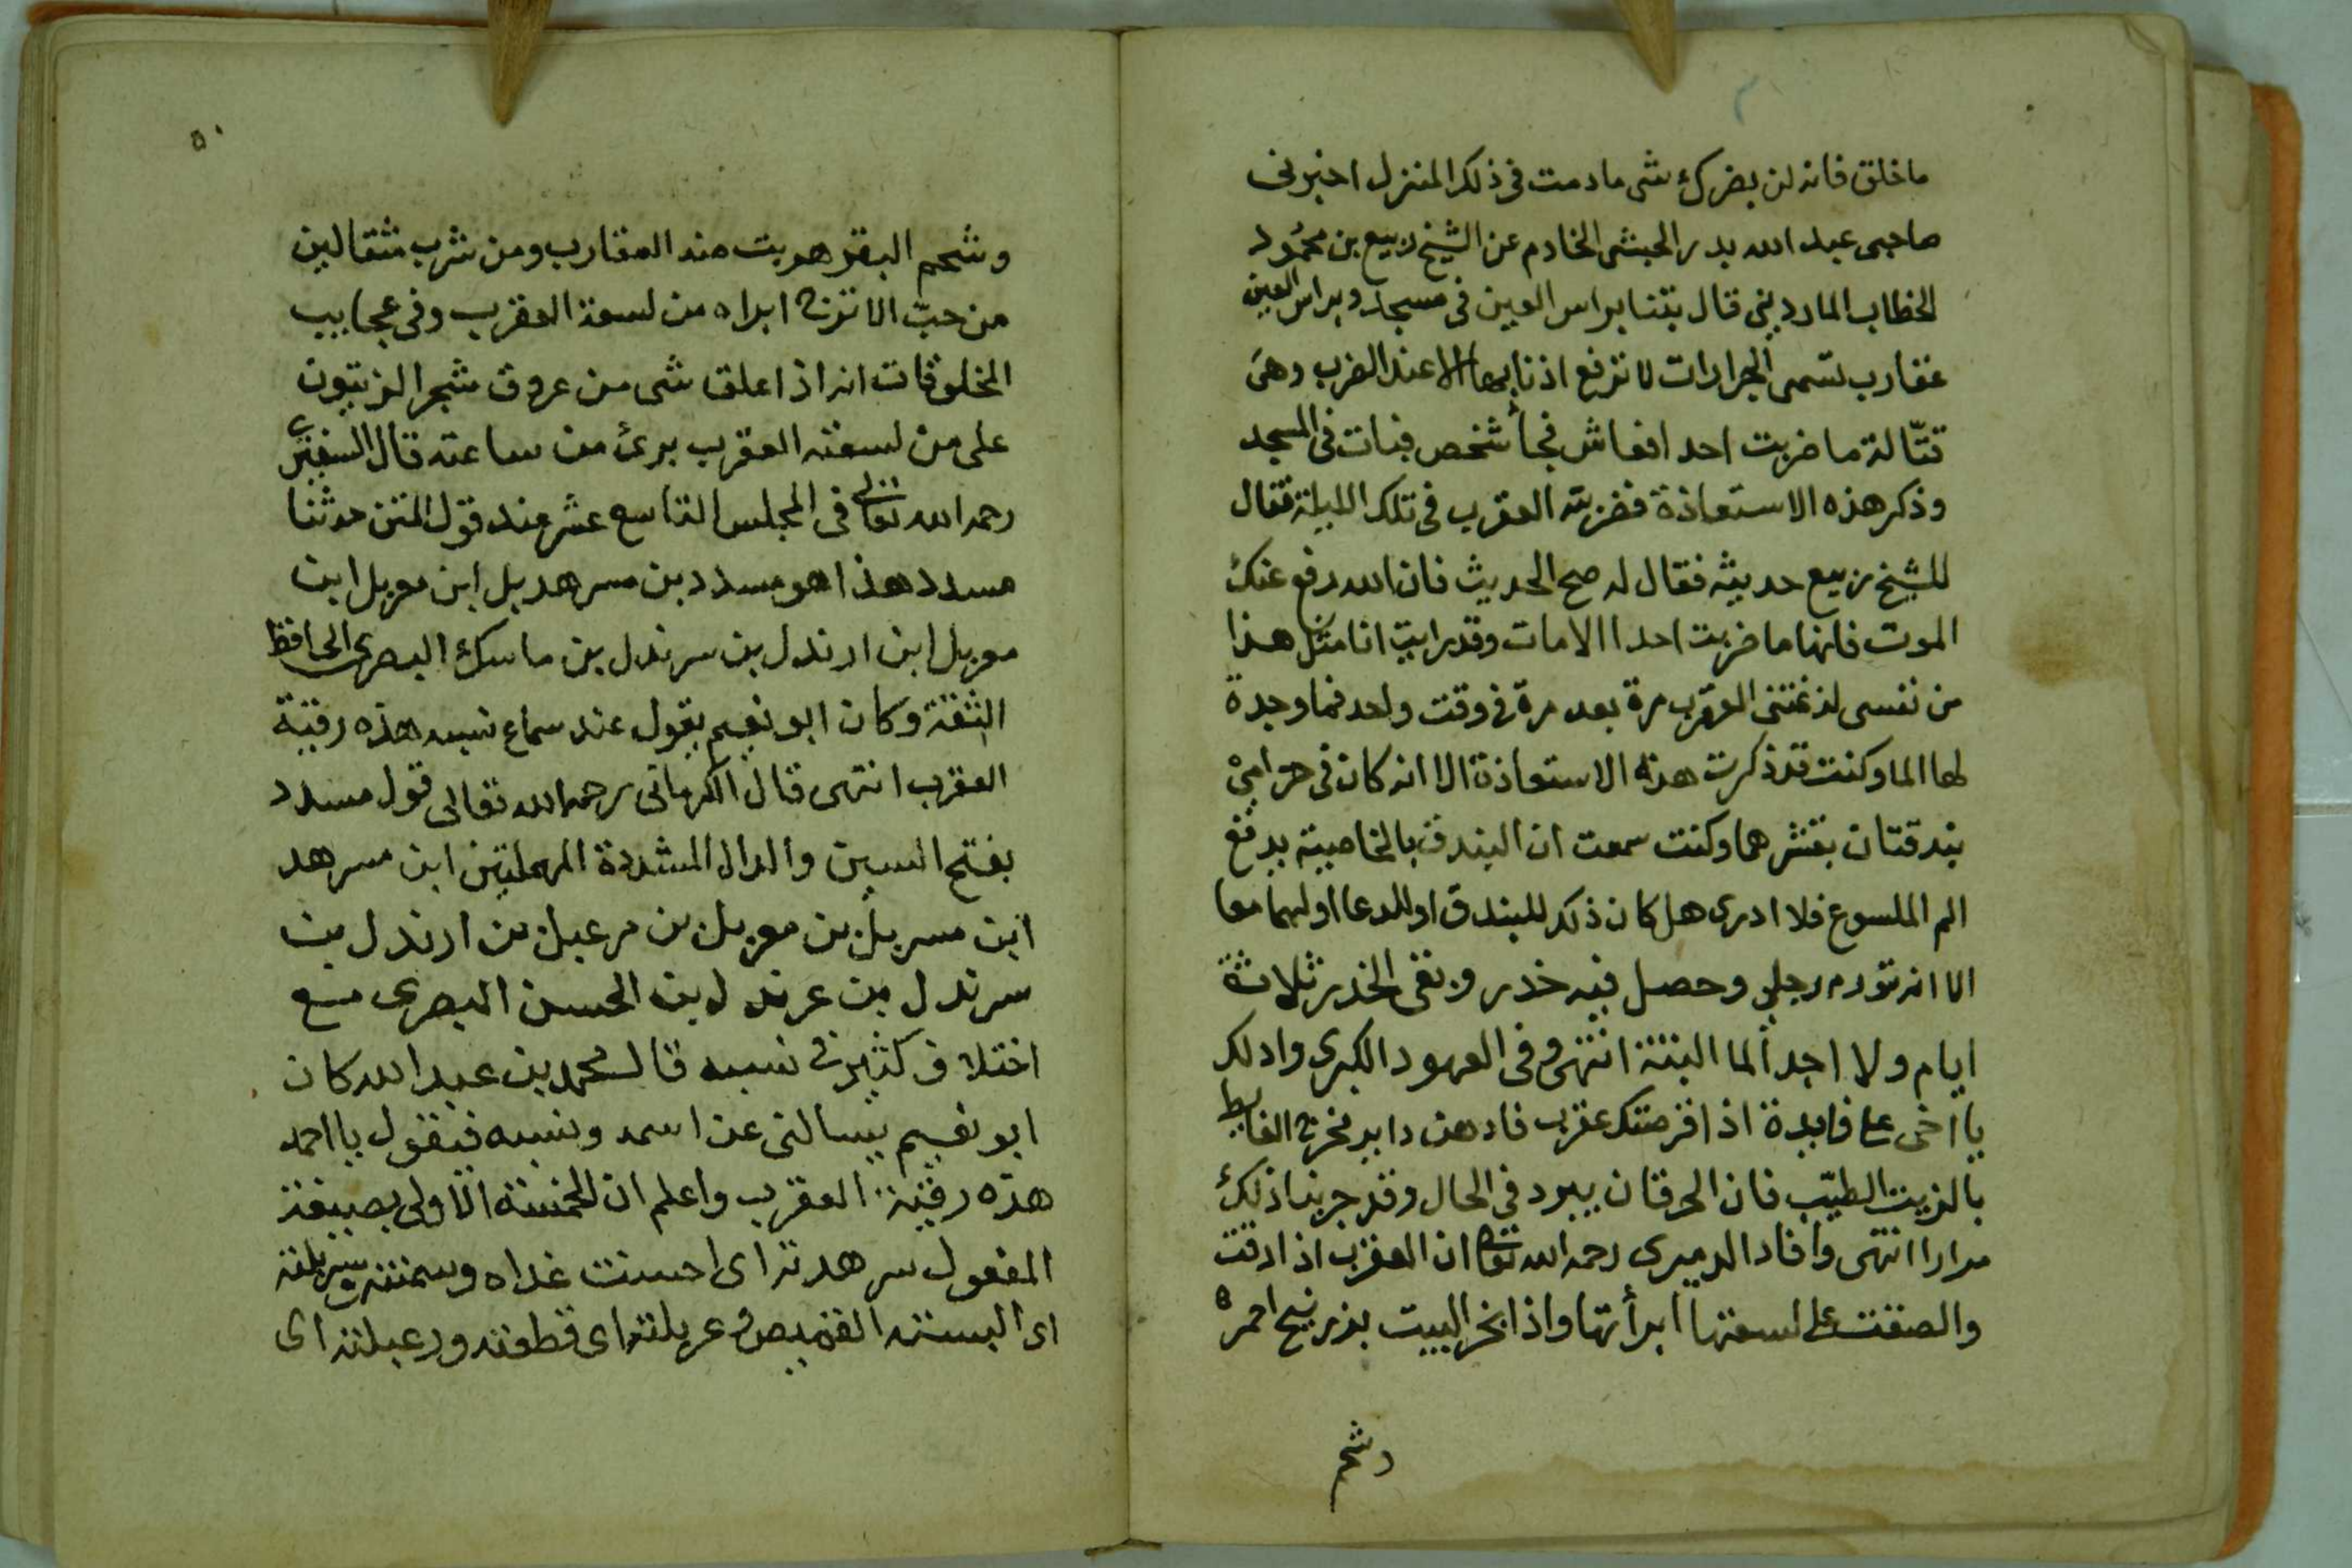 ما خلق فانه لن يضرك شى مادمت فى ذلك المنزل اخبرنى
صاحبى عبد الله بدر الحبشى الخادم عن الشيخ ربيع بن محمود
الخطاب الماردينى قال بتنا براس العين فى مسجد وبراس العين
عقارب تسمى الجرارات لا ترفع اذنابها الا عند الضرب وهى
قتّالة ما ضربت احد افعاش فجأ شخص فبات فى المسجد
وذكر هذه الاستعاذة فضربته العقرب فى تلك الليلة فقال
للشيخ ربيع حديثه فقال له صح الحديث فان الله دفع عنك
الموت فانها ما ضربت احدا الا مات وقد رايت انا مثل هذا
من نفسى لدغتنى العقرب مرة بعد مرة فى وقت واحد فما وجدة
لها الما وكنت قد ذكرت هذه الاستعاذة الا انه كان فى حزامى
بندقتان بقشرهما وكنت سمعت ان البندق بالخاصية يدفع
الم الملسوع فلا ادرى هل كان ذلك للبندق او للدعا او لهما معا
الا انه تورم رجلى وحصل فيه خدر وبقى الخدر ثلاثة
ايام ولا اجد ألما البتة انتهى وفى العهود الكبرى وادلك
يا اخى على فايدة اذا قرصتك عقرب فادهن داير مخرج الغايط
بالزيت الطيّب فان الحرقان يبرد فى الحال وقد جربنا ذلك
مرارا انتهى وافاد الدميرى رحمه الله تعالى ان العقرب اذا دقت
والصقت على لسعتها ابرأتها واذا بخر البيت بزرنيخ احمر
وشحم
٥٠
وشحم البقر هربت منه العقارب ومن شرب مثقالين
من حبّ الاترج ابراه من لسعة العقرب وفى عجايب
المخلوقات انه اذا علق شى من عروق شجر الزيتون
على من لسعته العقرب برئ من ساعته قال السفيرى
رحمه الله تعالى فى المجلس التاسع عشر عند قول المتن حدثنا
مسدد هذا هو مسدد بن مسرهد بل ابن معربل ابن
معربل ابن ارندل بن سرندل بن ماسك البصرى الحافظ
الثقة وكان ابو نعيم يقول عند سماع نسبه هذه رقية
العقرب انتهى قال الكرمانى رحمه الله تعالى قول مسدد
بفتح السين والدال المشددة المهملتين ابن مسرهد
ابن مسربل بن معربل بن مرعبل بن ارندل بن
سرندل بن عرندل بن الحسن البصرى مع
اختلاف كثير فى نسبه قال محمد بن عبد الله كان
ابو نعيم يسالنى عن اسمه ونسبه فيقول يا احمد
هذه رقية العقرب واعلم ان الخمسة الاولى بصيغة
المفعول سرهدته اى احسنت غداه وسمنته وسربلته
اى البسته القميص وعربلته اى قطعته ورعبلته اى